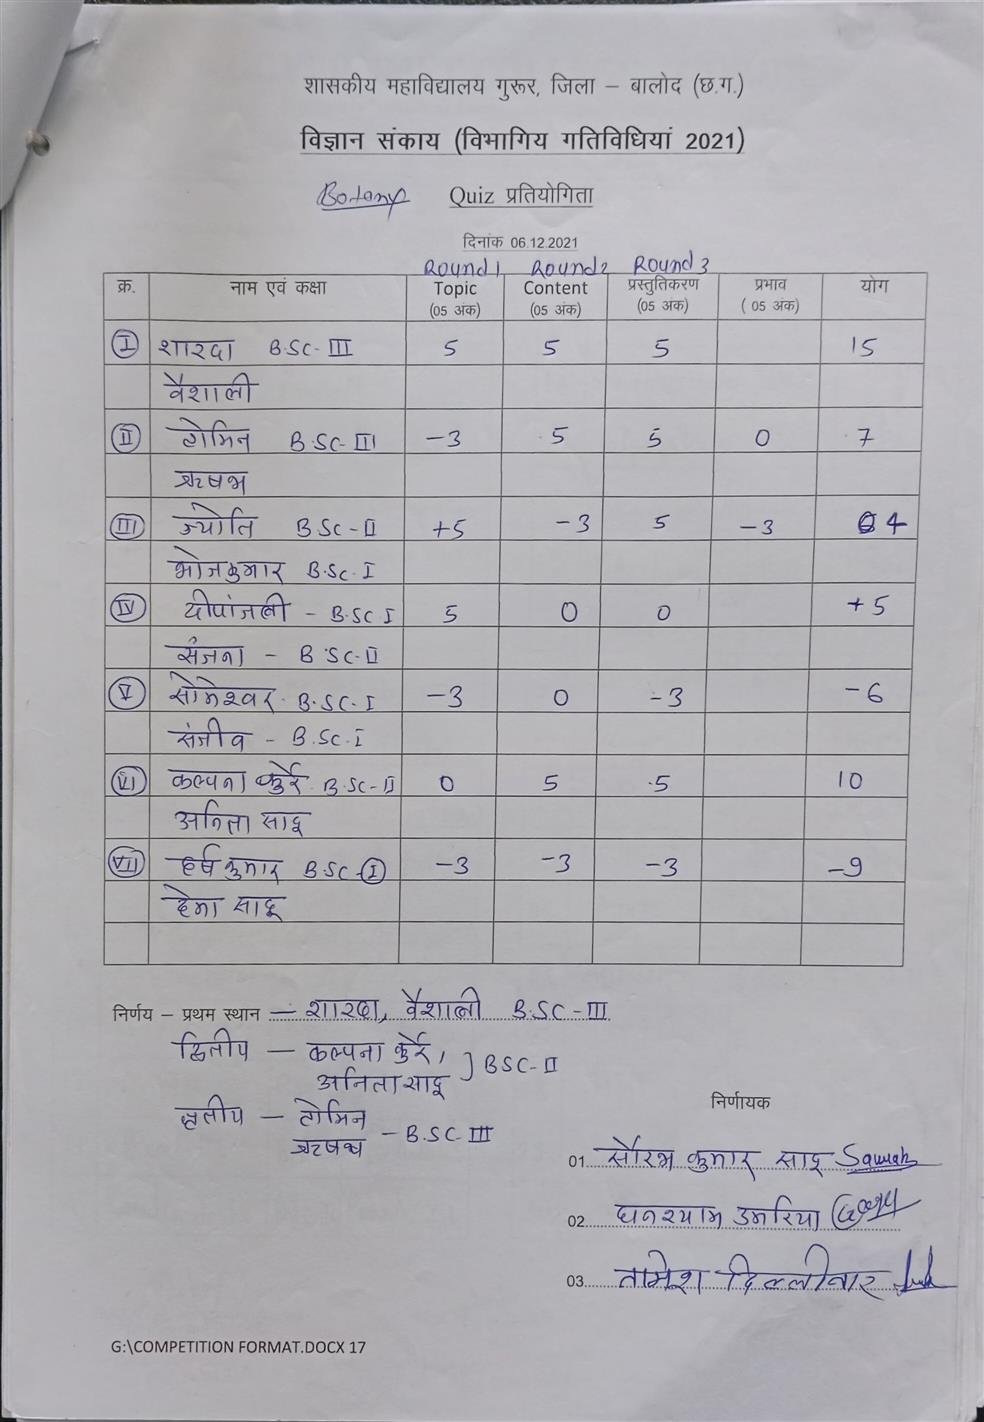 शासकीय महाविद्यालय गुरूर, जिला – बालोद (छ.ग.)
विज्ञान संकाय (विभागिय गतिविधियां 2021)
Botany Quiz प्रतियोगिता
दिनांक 06.12.2021
Round 1 Round 2 Round 3
क्र. नाम एवं कक्षा Topic (05 अंक) Content (05 अंक) प्रस्तुतिकरण (05 अंक) प्रभाव ( 05 अंक) योग
I शारदा B.SC- III 5 5 5 15
वैशाली
II लोमिन B.SC- III -3 5 5 0 7
ऋषभ
III ज्योति B.SC-II +5 -3 5 -3 4
भोजकुमार B.SC-I
IV दीपांजली - B.SC I 5 0 0 +5
संजना - B.SC-II
V सोमेश्वर B.SC-I -3 0 -3 -6
संजीव - B.SC-I
VI कल्पना कुर्रे B.SC-II 0 5 5 10
अनिता साहू
VII हर्ष कुमार B.SC-I -3 -3 -3 -9
हेमा साहू
निर्णय – प्रथम स्थान – शारदा, वैशाली B.SC-III
द्वितीय – कल्पना कुर्रे, ] BSC-II
अनिता साहू
तृतीय – लोमिन
ऋषभ – B.SC III
निर्णायक
01 सौरभ कुमार साहू Saurabh
02 घनश्याम उमरिया
03 तामेश दिल्लीवार
G:\COMPETITION FORMAT.DOCX 17